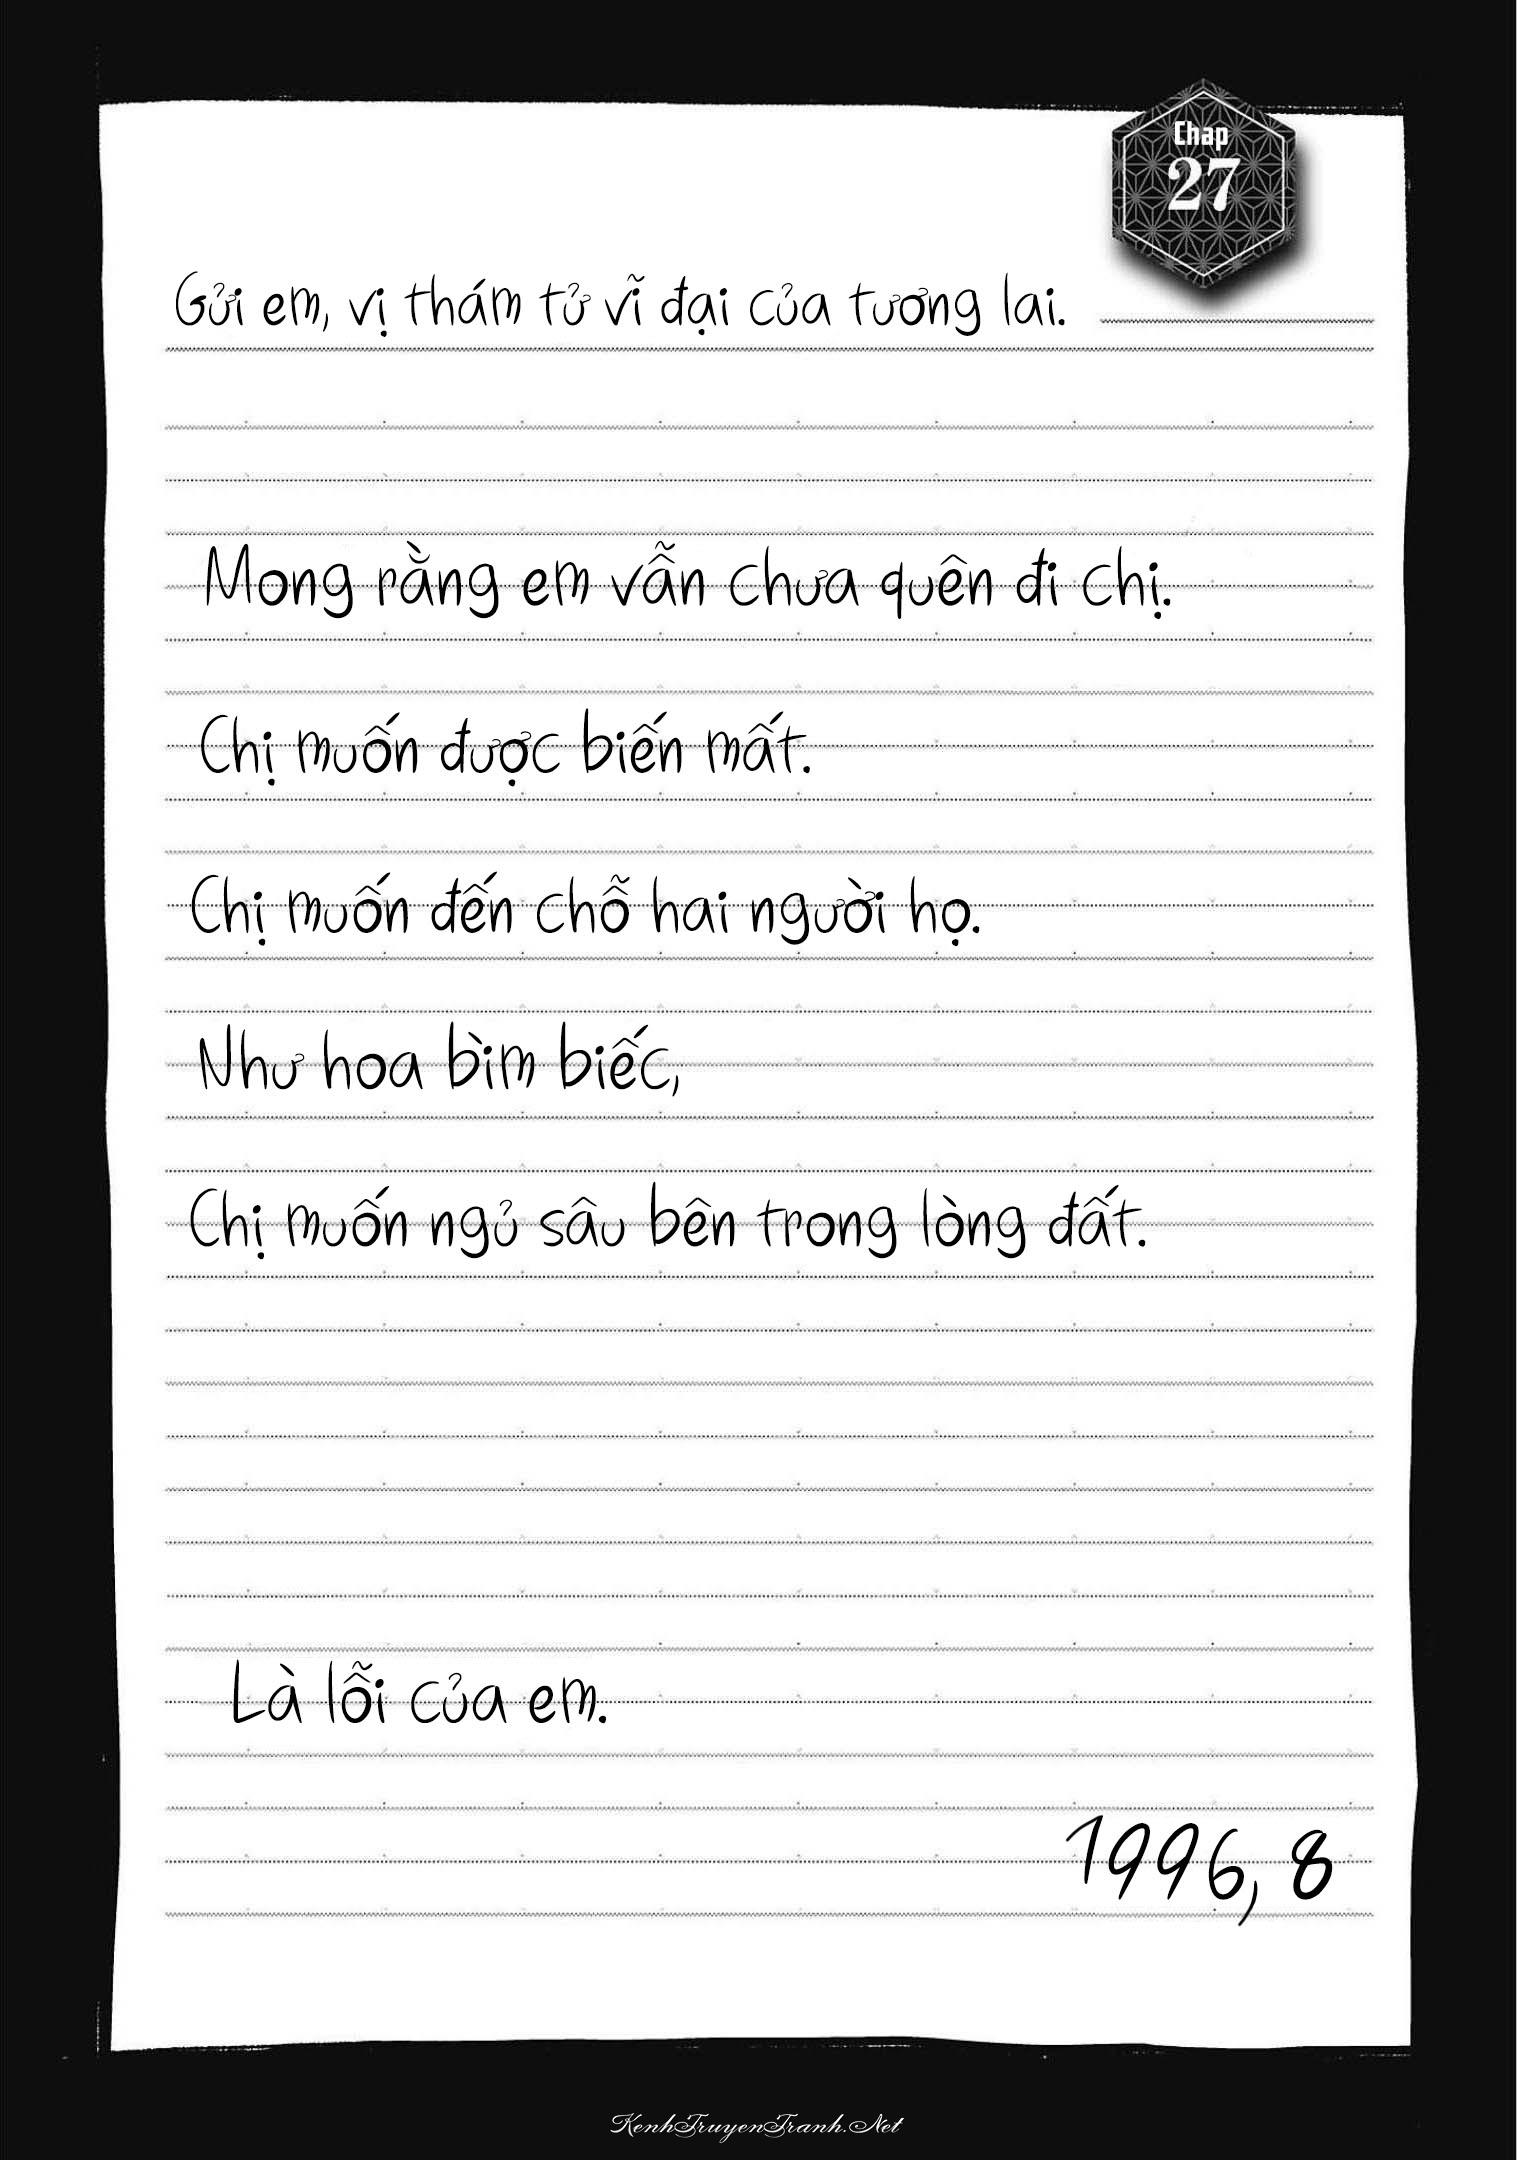 Chap
27
Gửi em, vị thám tử vĩ đại của tương lai.
Mong rằng em vẫn chưa quên đi chị.
Chị muốn được biến mất.
Chị muốn đến chỗ hai người họ.
Như hoa bìm biếc,
Chị muốn ngủ sâu bên trong lòng đất.
Là lỗi của em.
1996, 8
KenhTruyenTranh.Net